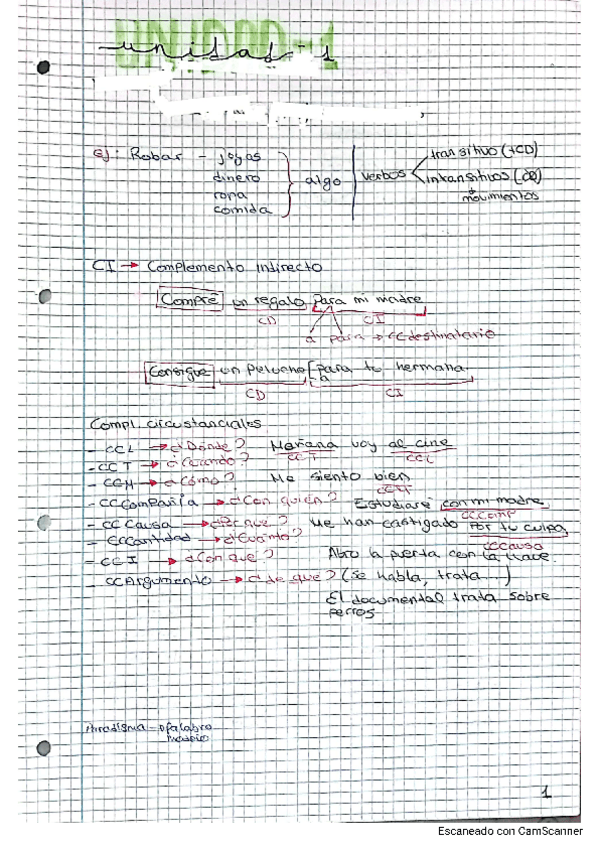 unidad-1
ej: Robar - joyas
dinero
ropa
comida
algo
verbos
transitivo (+CD)
intransitivos (CD)
movimientos
CI → Complemento indirecto
Compré un regalo para mi madre
CD CI
a para → CC destinatario
Consigue un peluche para tu hermana
a
CD CI
Compl. circustanciales
- CCL → ¿Dónde? Mañana voy al cine
CCT CCL
- CCT → ¿Cuándo?
- CCM → ¿Cómo? Me siento bien
CCM
- CCCompañía → ¿Con quién? Estudiaré con mi madre
CCComp
- CCCausa → ¿Por qué? Me han castigado por tu culpa
CCCausa
- CCCantidad → ¿Cuánto?
- CCI → ¿Con qué? Abro la puerta con la llave.
- CCArgumento → ¿de que? (Se habla, trata...)
El documental trata sobre
perros
Paradigma → palabra
1
Escaneado con CamScanner